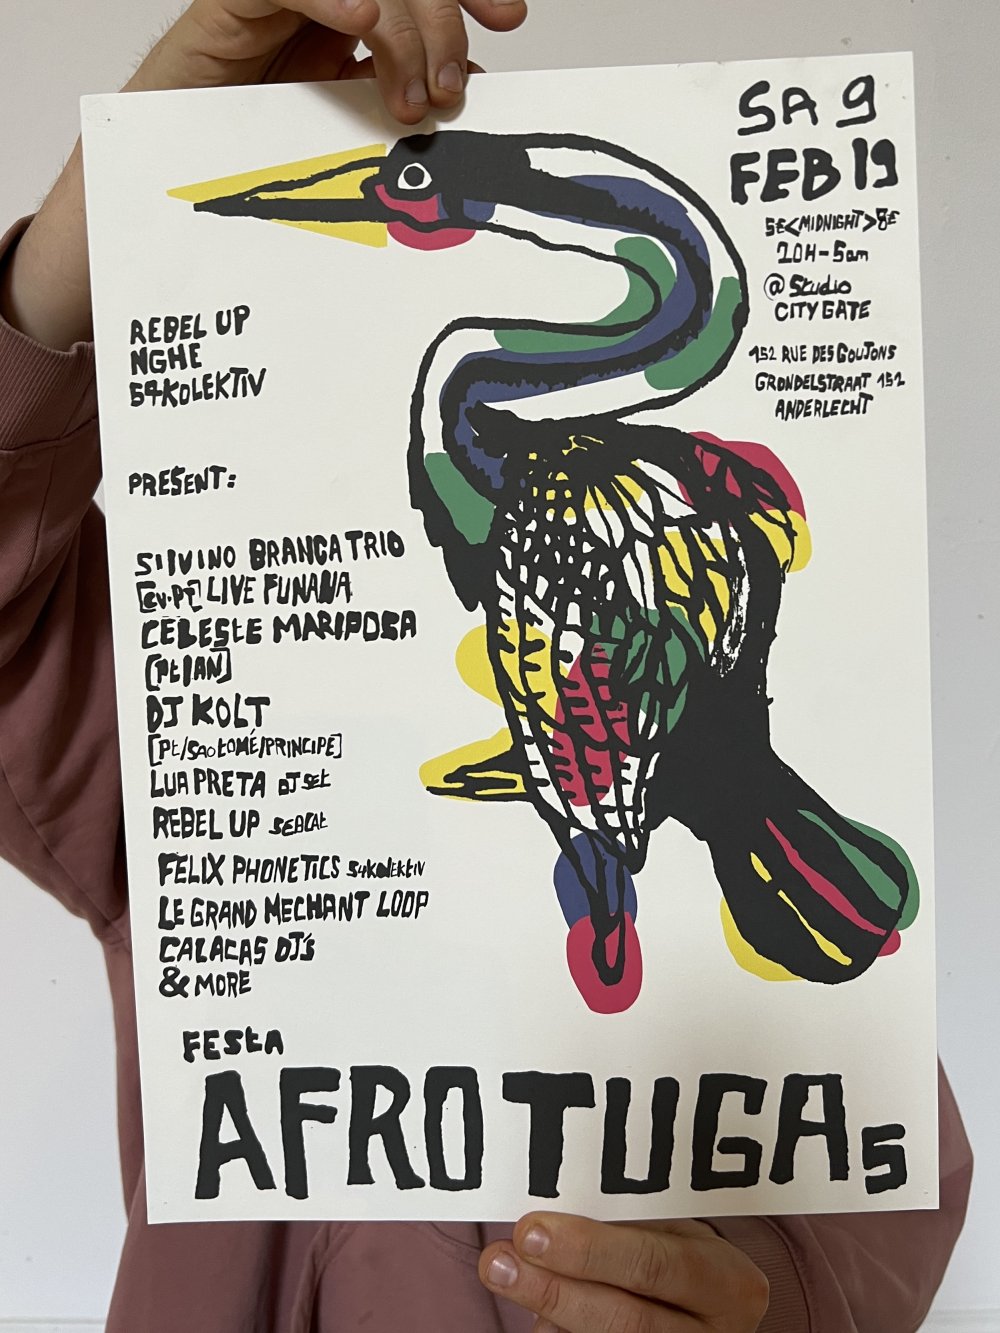 SA 9
FEB 19
5€<MIDNIGHT>8€
20H-5am
@ Studio
CITY GATE
152 RUE DES GOUJONS
GRONDELSTRAAT 152
ANDERLECHT
REBEL UP
NGHE
54KOLEKTIV
PRESENT:
SILVINO BRANCA TRIO
[CV.PT] LIVE FUNANA
CELESTE MARIPOSA
[Pt/AN]
DJ KOLT
[Pt/SAO tOMÉ/PRINCIPE]
LUA PRETA DJ SEt
REBEL UP SEBCAt
FELIX PHONETICS 54KOLEKTIV
LE GRAND MECHANT LOOP
CALACAS DJ's
& MORE
FEStA
AFROTUGAs